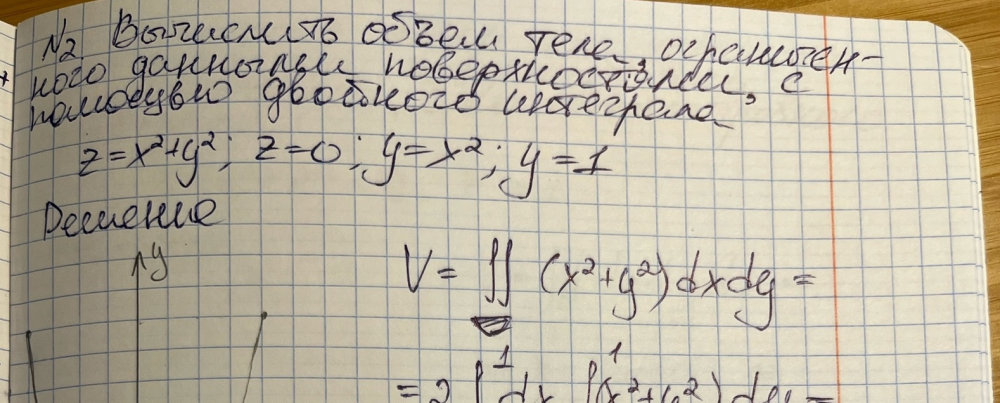 N2 Вычислить объем тела, ограничен-
ного данными поверхностями, с
помощью двойного интеграла
z=x²+y²; z=0; y=x²; y=1
Решение
y
V= ∬ (x²+y²)dxdy =
= 2 ∫ dx ∫(x²+y²) dy =
1 1